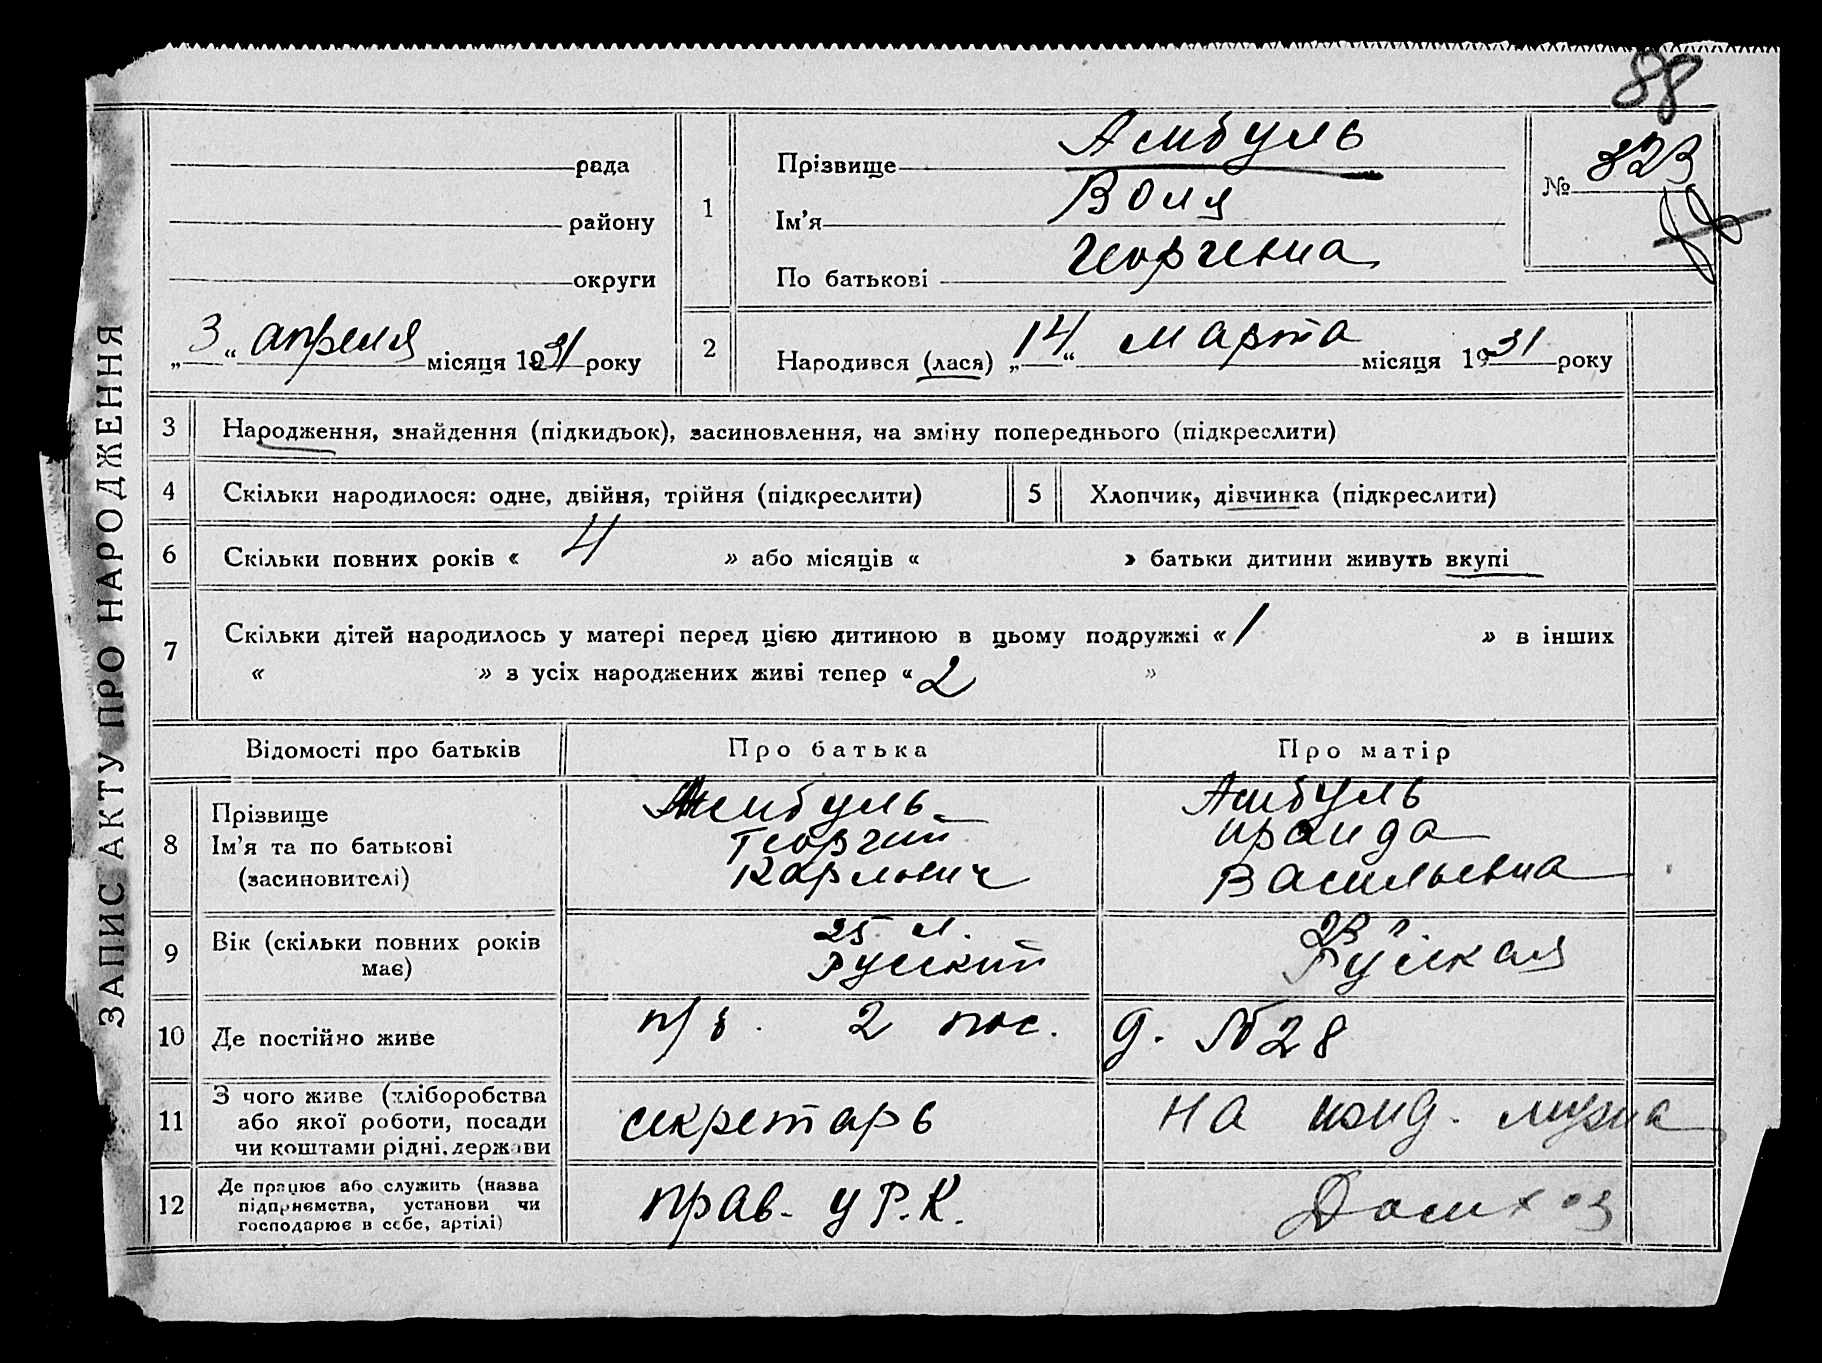 88
ЗАПИС АКТУ ПРО НАРОДЖЕННЯ
рада
району
округи
„3“ апреля місяця 1931 року
1
Прізвище Асмбуль
Ім’я Воля
По батькові Георгиевна
№ 323
2
Народився (лася) „14“ марта місяця 1931 року
3 Народження, знайдення (підкидьок), засиновлення, на зміну попереднього (підкреслити)
4 Скільки народилося: одне, двійня, трійня (підкреслити)
5 Хлопчик, дівчинка (підкреслити)
6 Скільки повних років « 4 » або місяців « » батьки дитини живуть вкупі
7 Скільки дітей народилось у матері перед цією дитиною в цьому подружжі « 1 » в інших
« » з усіх народжених живі тепер « 2 »
Відомості про батьків
Про батька
Про матір
8
Прізвище
Ім’я та по батькові
(засиновителі)
Асмбуль
Георгий
Карлович
Асмбуль
Ираида
Васильевна
9
Вік (скільки повних років
має)
25 л.
Русский
23
Русская
10 Де постійно живе
2 пос.
д. № 28
11
З чого живе (хліборобства
або якої роботи, посади
чи коштами рідні, держави
секретарь
на ижд. мужа
12
Де працює або служить (назва
підприємства, установи чи
господарює в себе, артілі)
прав. у Р.К.
Домхоз